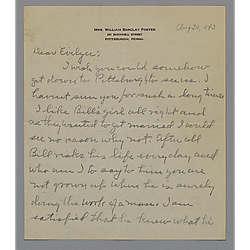 Aug 30, 1943
MRS. WILLIAM BARCLAY FOSTER
PITTSBURGH, PENNA.
Dear Evelyn:
I wish you could somehow
get down to Pittsburgh to see us. I
haven't seen you for such a long time.
I like Bill's girl all right and
as they wanted to get married I could
see no reason why not. After all
Bill risks his life every day and
who am I to say to him you are
not grown up when he is surely
doing the work of a man. I am
satisfied that he knew what he